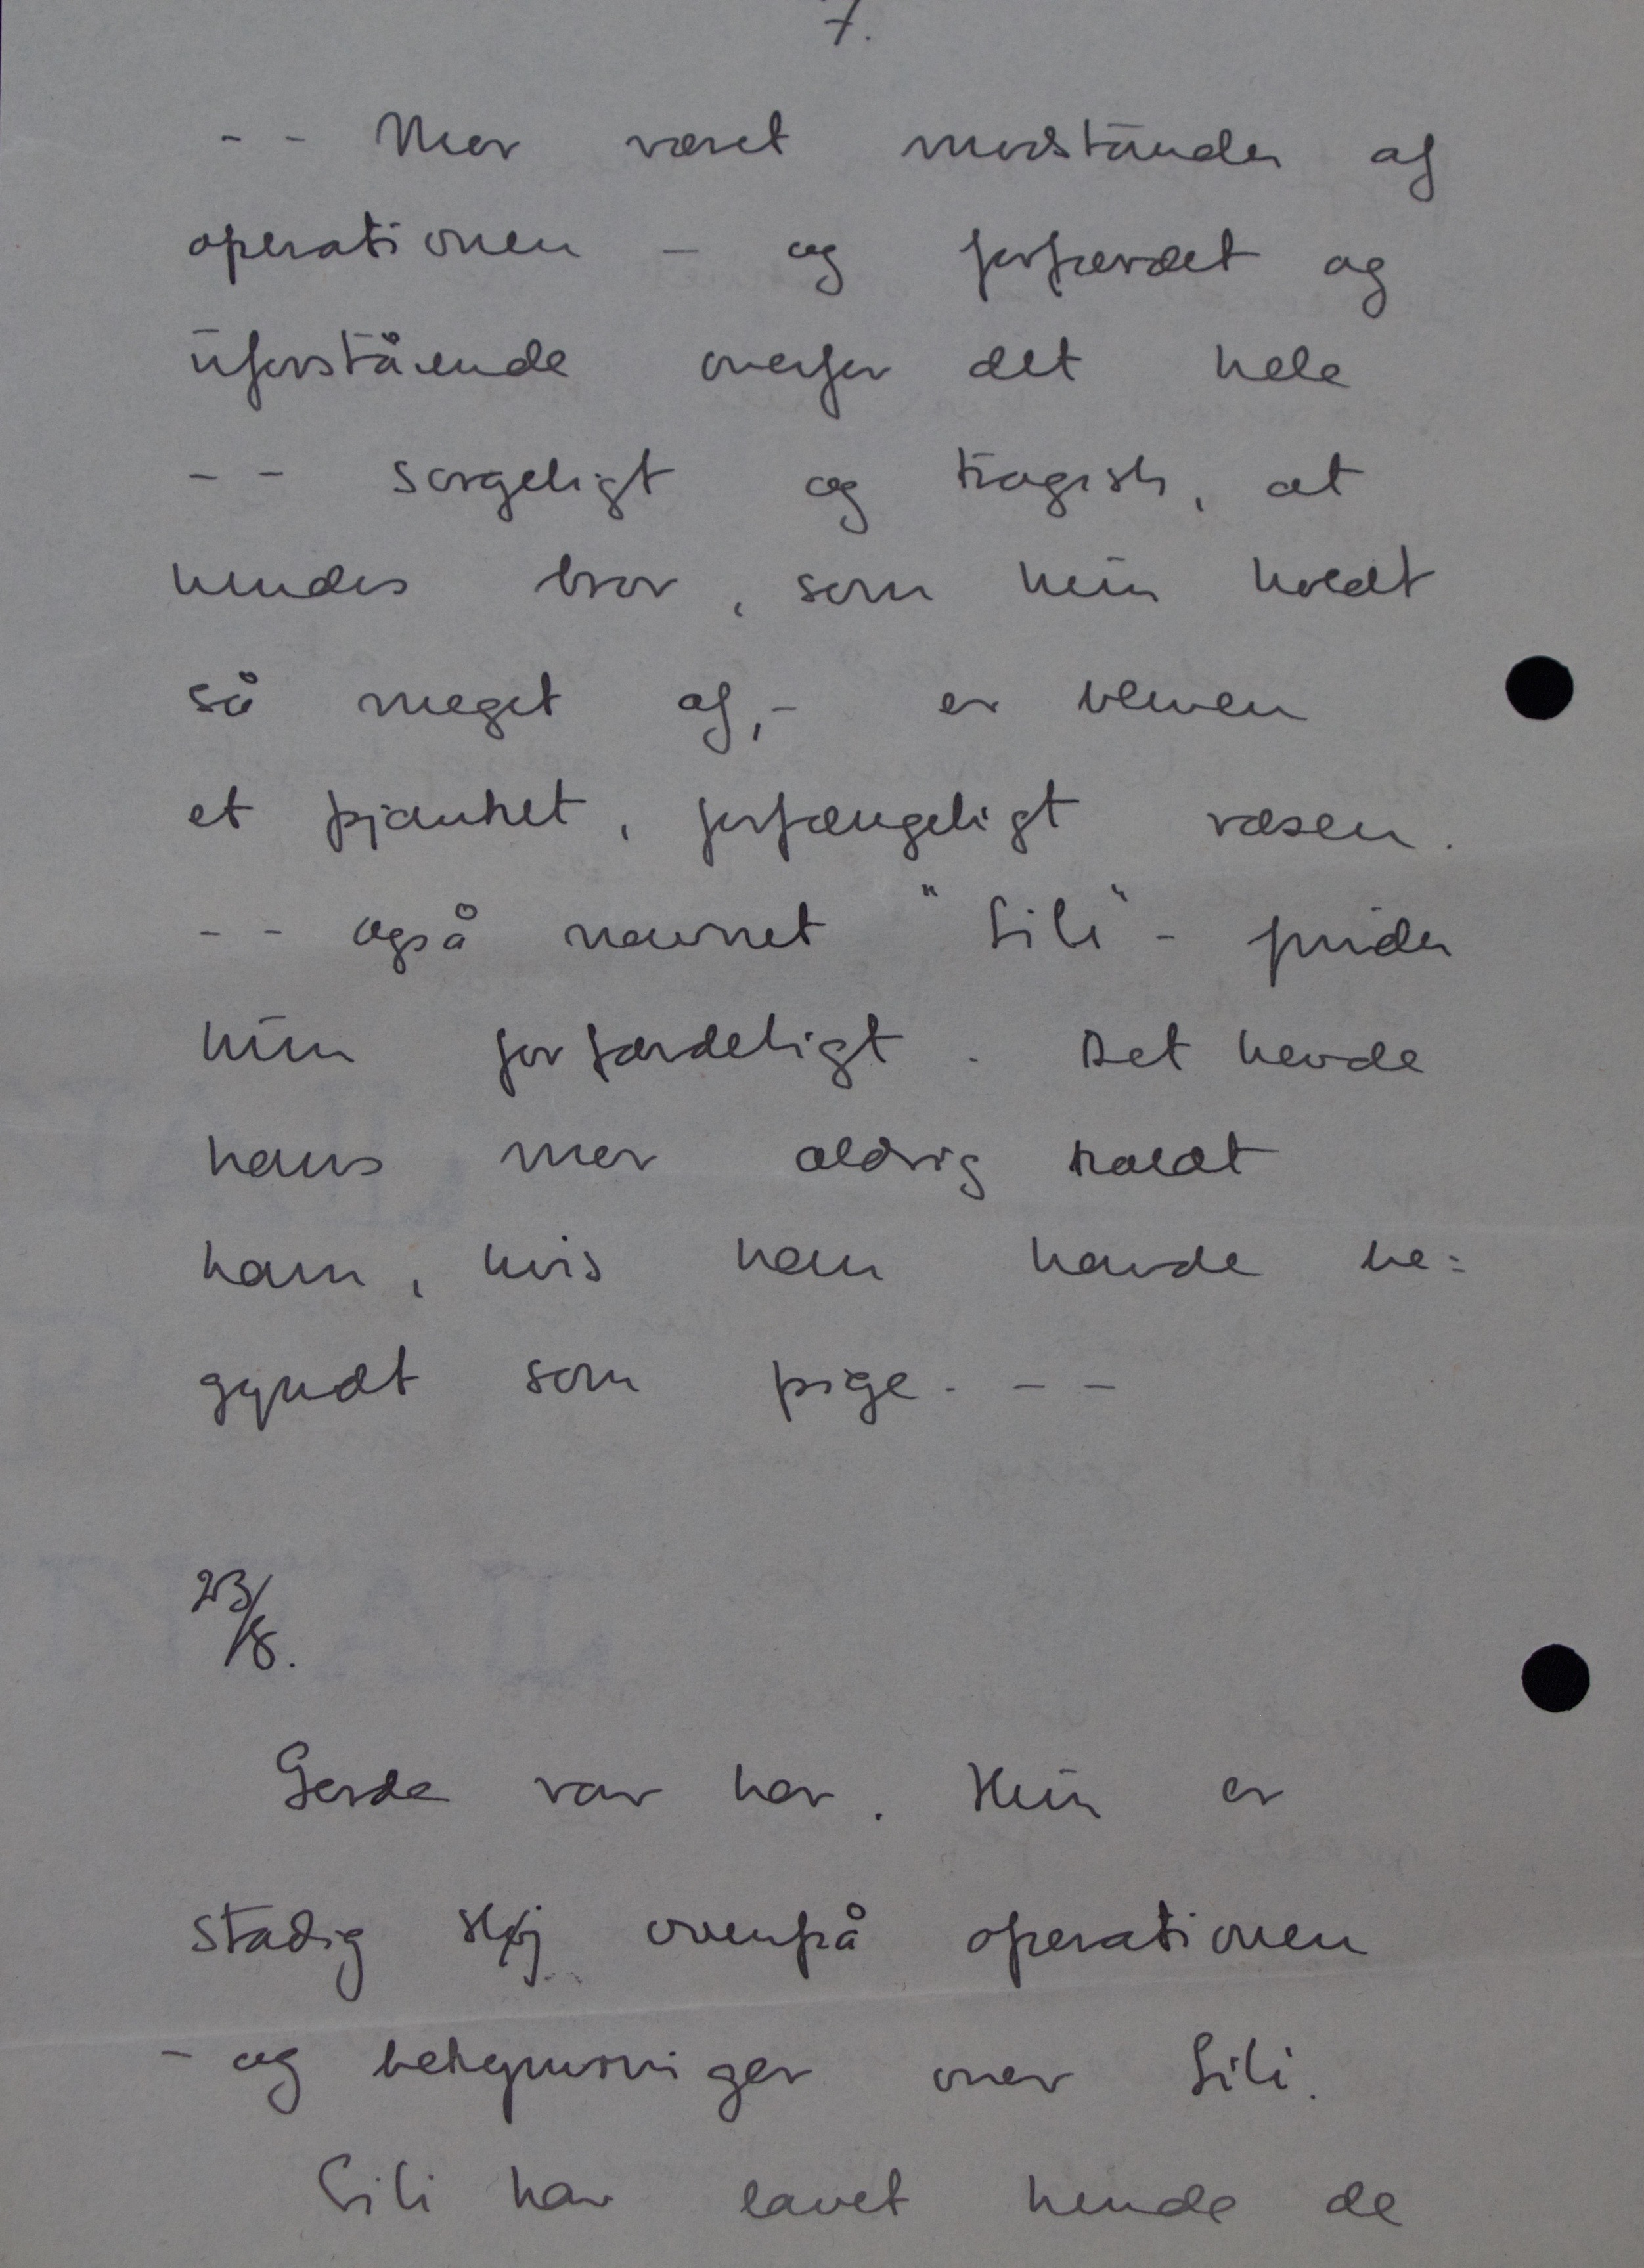 7.
- - Mer været modstander af
operationen - og forfærdet og
uforstående overfor det hele
- - sorgeligt og tragisk, at
hendes bror, som hun holdt
så meget af,- er bleven
et pjanket, forfængeligt væsen.
- - også navnet "Lili" - finder
hun forfærdeligt. Det havde
hans mor aldrig kaldt
ham, hvis han havde be=
gyndt som pige. - - -
23/8.
Gerda var her. Hun er
stadig høj ovenpå operationen
- og bekymringer over Lili.
Lili har lavet hende de